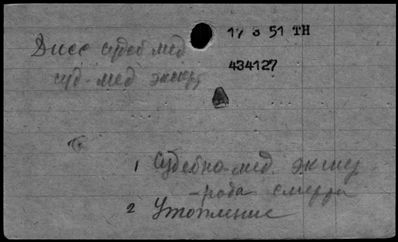 Дисс судеб мед
17 3 51 TH
суд-мед эксперт
434127
1 Судебно-мед. экспер
-рода смерти
2 Утопление